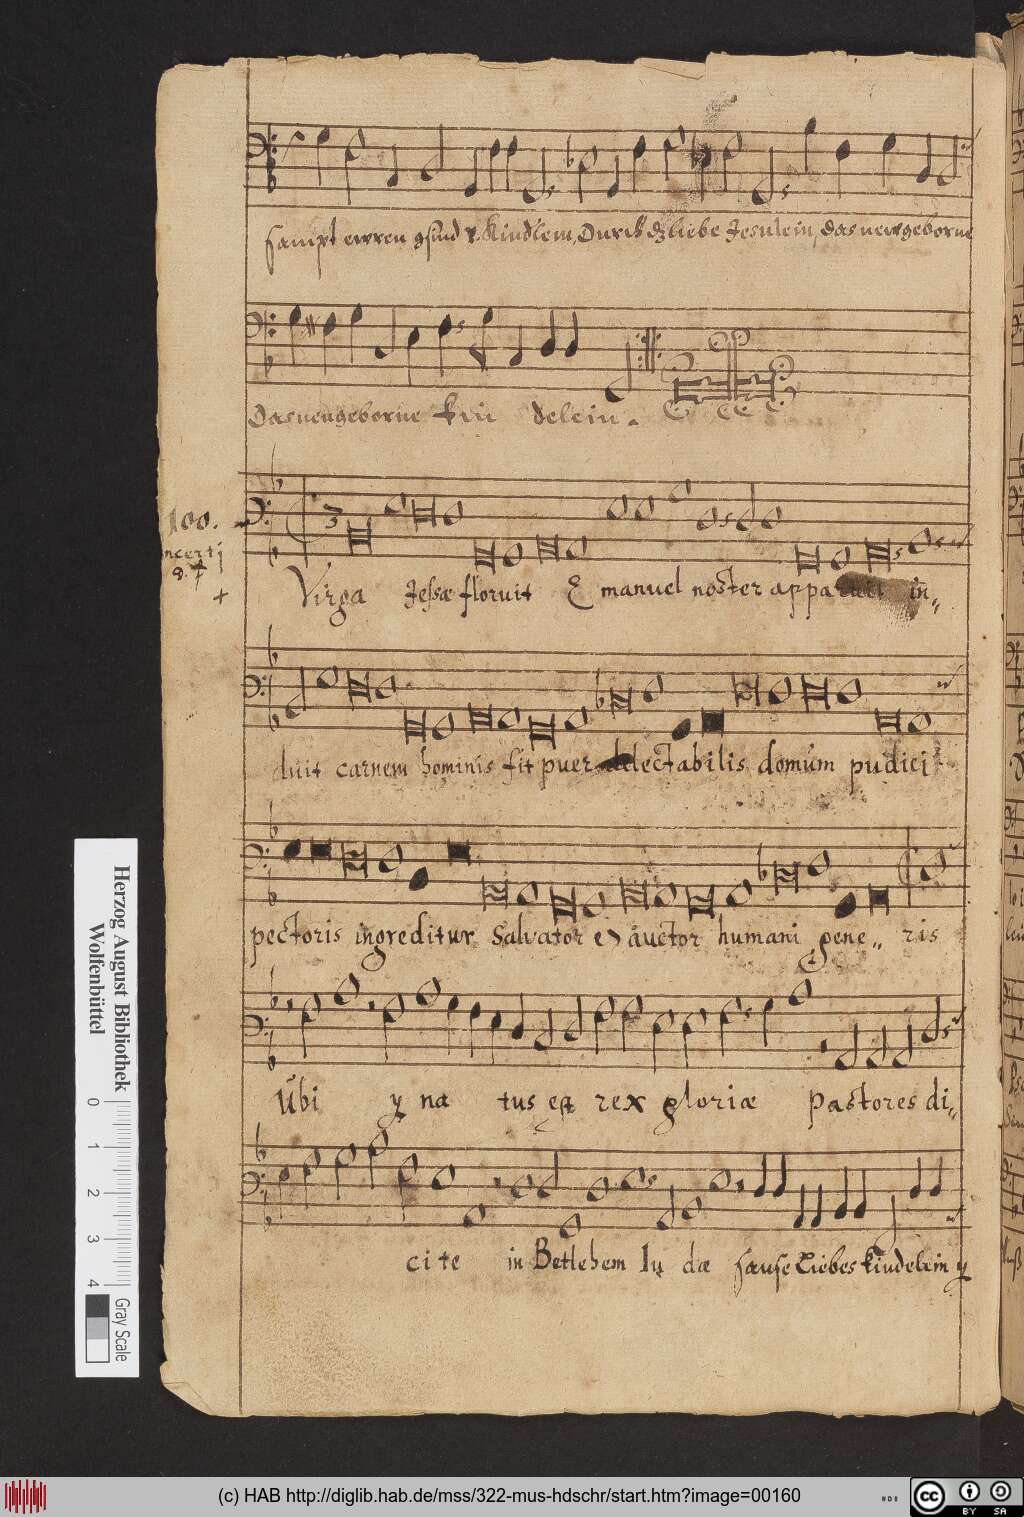 sampt ewren gsind v. Kindlein, Durch dz liebe Jesulein, das newgeborne
Das neugeborne kin delein.
100.
incerti
8.
Virga Jessæ floruit Emanuel noster apparuit in„
duit carnem hominis fit puer delectabilis domum pudici
pectoris ingreditur Salvator et auctor humani gene„ ris
Ubi ij na tus est rex gloriæ pastores di„
cite in Betlehem Iu dæ sause liebes kindelein ij
Herzog August Bibliothek
Wolfenbüttel
0 1 2 3 4
Gray Scale
(c) HAB http://diglib.hab.de/mss/322-mus-hdschr/start.htm?image=00160
cc BY SA